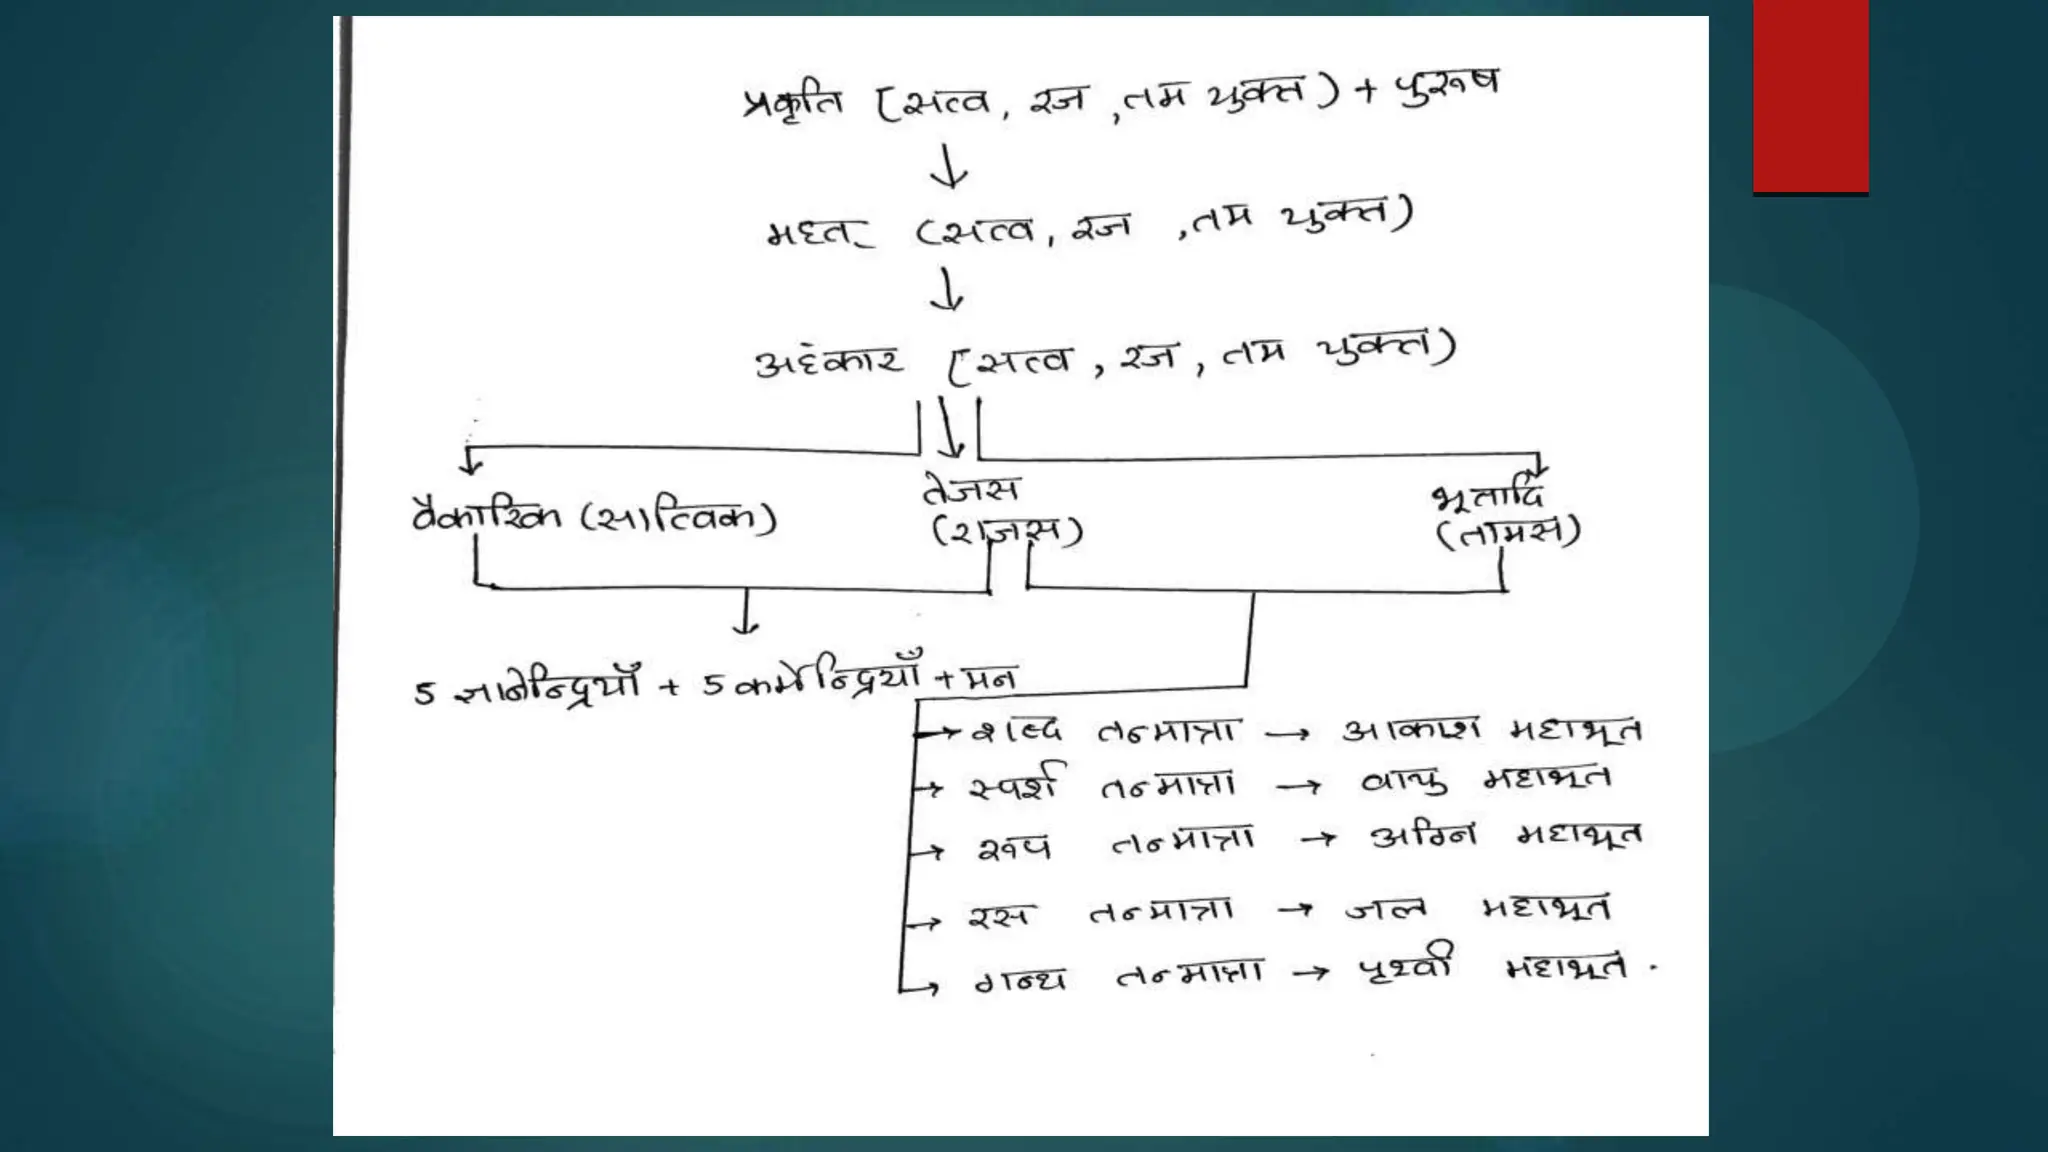 प्रकृति [सत्व, रज, तम युक्त) + पुरूष
↓
महत् (सत्व, रज, तम युक्त)
↓
अहंकार [सत्व, रज, तम युक्त)
वैकारिक (सात्विक)
तेजस
(राजस)
भूतादि
(तामस)
5 ज्ञानेन्द्रियाँ + 5 कर्मेन्द्रियाँ + मन
→ शब्द तन्मात्रा → आकाश महाभूत
→ स्पर्श तन्मात्रा → वायु महाभूत
→ रूप तन्मात्रा → अग्नि महाभूत
→ रस तन्मात्रा → जल महाभूत
→ गन्ध तन्मात्रा → पृथ्वी महाभूत.